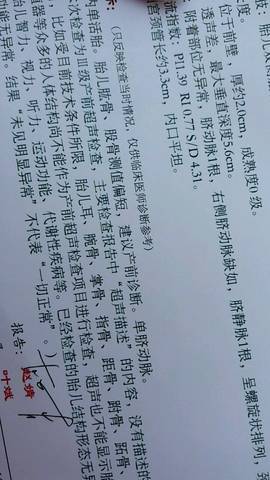 肢：胎儿双
位于前壁，厚约2.0cm，成熟度0 级。
透声差，最大垂直深度5.6cm。
附着部位无异常，脐动脉1根，右侧脐动脉缺如，脐静脉1根，呈螺旋状排列，
流指数：PI1.39 RI 0.77 S/D 4.31。
颈管长约3.3cm，内口平坦。
示：（只反映检查当时情况，仅供临床医师诊断参考）
内单活胎。胎儿肱骨、股骨测值偏短，建议产前诊断。单脐动脉。
次检查为Ⅲ级产前超声检查，主要检查报告中“超声描述”的内容，没有描述的
，比如受目前技术条件所限，胎儿耳、腕骨、掌骨、指骨、距骨、跗骨、跖骨、
道等众多的人体结构尚不能作为产前超声检查项目进行检查，超声也不能显示胎
胎儿智力、视力、听力、运动功能、代谢性疾病等。已经检查的胎儿结构形态无异
能无异常。结果“未见明显异常”不代表“一切正常”。）
报告：
赵婧
叶斌